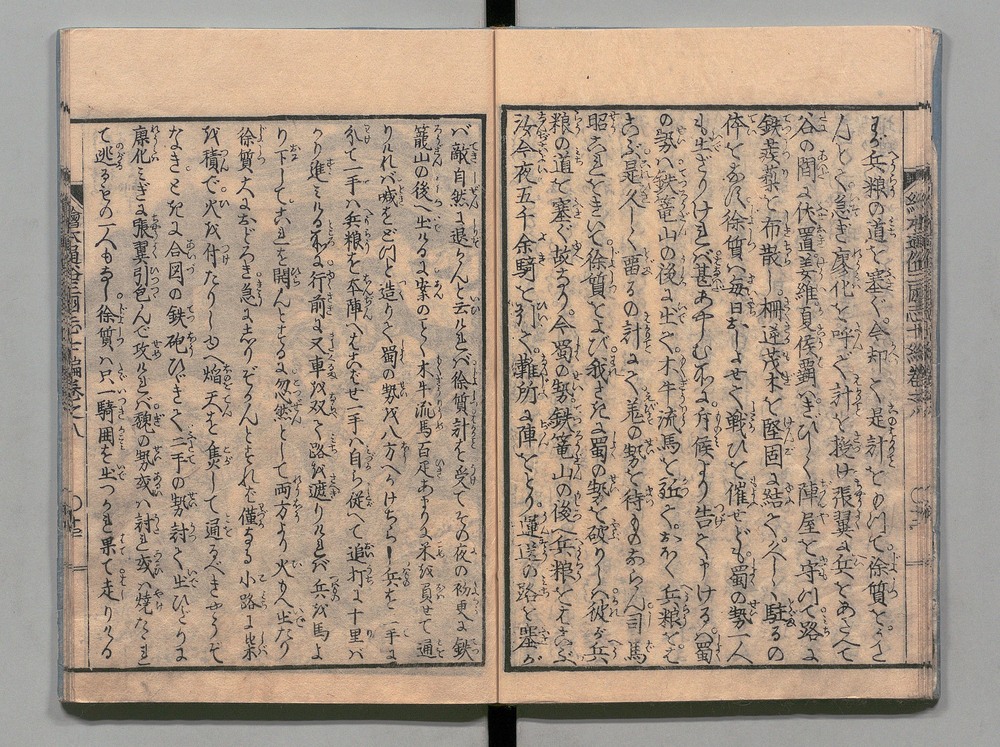 まが兵粮の道を塞ぐ今却て是計をもつて徐質をうたんとて急ぎ廖化を呼で計を授け張翼に兵をあたへて
谷の間に伏置姜維夏侯覇へきびしく陣屋を守つて路に
鉄蒺藜を布散し柵逆茂木を堅固に結で久しく駐るの
体をなす徐質は毎日おしよせて戦ひを催せども蜀の勢一人
も出ざりければ甚あやしむ所に斥候より告て申けるは蜀
の勢は鉄篭山の後に出て木牛流馬を以ておほく兵粮を
はこぶ是久しく畱るの計にて羌の勢を待ものならん司馬
昭これをきいて徐質をよび我さきに蜀の勢を破りしは彼が兵
粮の道を塞ぐ故なり今蜀の勢鉄篭山の後へ兵粮をはこぶ
汝今夜五千余騎を引て難所に陣をとり運送の路を塞が
バ敵自然に退かんと云ければ徐質計を受てその夜の初更に鉄
籠山の後へ出けるに案のごとく木牛流馬百疋あまりに米を負せて通
りければ喊をどつと造りて蜀の勢を八方へかけちらし兵を二手に
分て一手は兵粮を本陣へはこばせ一手は自ら従へて追打に十里ば
かり進みける所に行前に又車を双て路を遮りければ兵を馬よ
り下してこれを開んとする忽然として両方より火もへ出たり
徐質大におどろき急に走りぞかんとすれば僅なる小路に柴
を積で火を付たりしかば焔天を焦して通るべきやうぞ
なきときに合図の鉄砲ひびきて二手の勢討て出ひとりは
廖化ひとりは張翼引包んで攻ければ魏の勢或は討れ或は焼たれ
て逃るもの一人もなし徐質は只一騎囲を出つかれ果て走りける